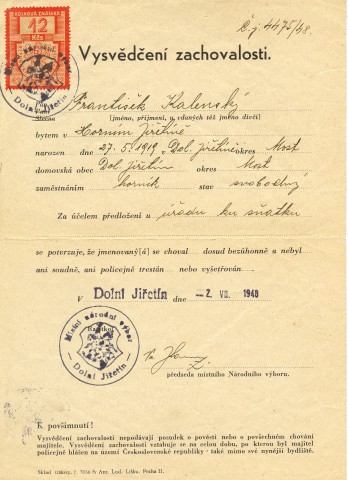 KOLKOVÁ ZNÁMKA
12
Kčs
Č. j. 4475/48.
Vysvědčení zachovalosti.
Místní národní výbor
Dolní Jiřetín
František Kalenský
[jméno, příjmení, u vdaných též jméno dívčí]
bytem v Horním Jiřetíně
narozen dne 27. 5. 1919 v Dol. Jiřetíně okres Most
domovská obec Dol. Jiřetín okres Most
zaměstnáním horník stav svobodný
Za účelem předložení u úřadu ku sňatku
se potvrzuje, že jmenovaný[á] se choval dosud bezúhonně a nebyl
ani soudně, ani policejně trestán nebo vyšetřován.
V Dolní Jiřetín dne -2. VII. 1948
Místní národní výbor
Razítko:
Dolní Jiřetín
předseda místního Národního výboru.
K povšimnutí!
Vysvědčení zachovalosti nepodávají posudek o pověsti nebo o povšechném chování
majitele. Vysvědčení zachovalosti vztahuje se na celou dobu, po kterou byl majitel
policejně hlášen na území Československé republiky · také mimo své nynější bydliště.
Sklad tiskop. č. & Ant. Lud. Liška, Praha II.